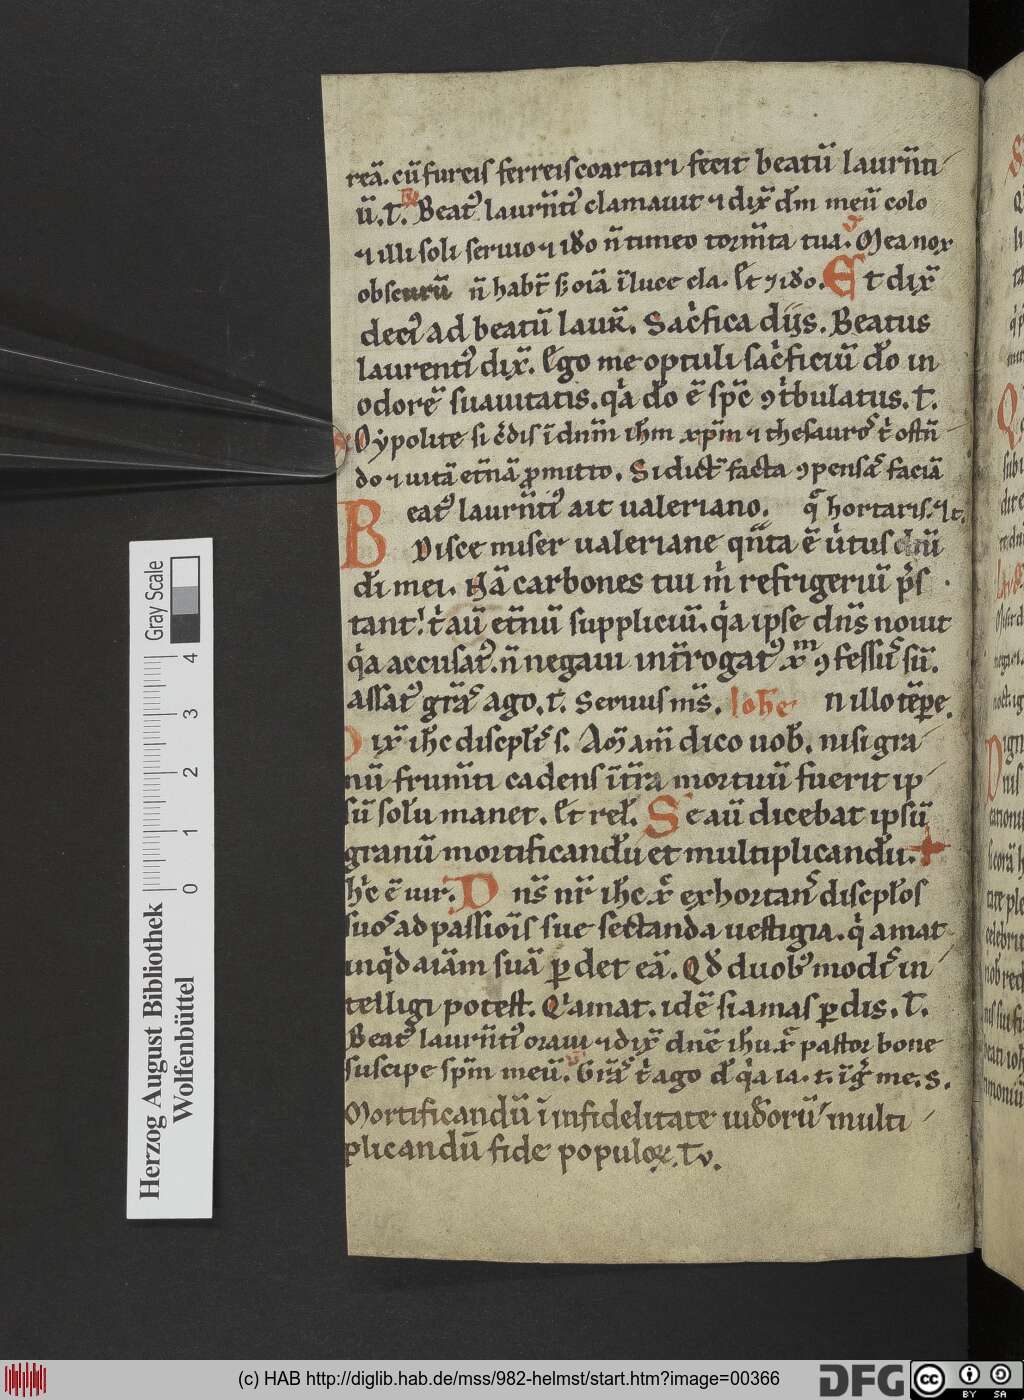 reā. cū furcis ferreis coartari fecit beatū laurn̄ti
ū. T. R Beat᷒ laurn̄ti᷒ clamauit ⁊ dix̄ dm̄ meū colo
⁊ illi soli seruio ⁊ iō n̄ timeo torm̄ta tua. V Mea nox
obscurū n̄ habt̄ s; oīa ī luce cla. Et ꝯ iō. Et dix̄
deci᷒ ad beatū laur̄. Sac̍fica diis. Beatus
laurenti᷒ dix̄. Ego me optuli sac̍ficiū dō in
odorē suauitatis. q̍a dō ē sp̄c ꝯt̍bulatus. T.
O ypolite si c̄dis ī dnm̄ ihm̄ xp̄m ⁊ thesauros t̍ ostn̄
do ⁊ uitā et̄nā p̄mitto. Si dict̄ facta ꝯpensas faciā
Beat᷒ laurn̄ti᷒ ait ualeriano. q̄ hortaris. T.
Disce miser ualeriane qn̄ta ē u̍tus dn̄i
dī mei. Nā carbones tui m̍ refrigeriū p̄s
tant! t̍ aū et̄nū suppliciū. q̍a ipse dn̄s nouit
q̍a accusat᷒. n̄ negaui int̄rogat᷒ xm̄ ꝯfessus sū.
assat᷒ grās ago. T. Seruus ms̄. Iohe n illo tēpe.
Dix̄ ihc̄ discipl̄is s. Am̄ am̄ dico uob̄. nisi gra
nū frum̄ti cadens ī t̄rā mortuū fuerit ip
sū solū manet. Et rel̄. Se aū dicebat ipsū
granū mortificandū et multiplicandū.
hic ē uir. Dns̄ nr̄ ihc̄ xc̄ exhortans discipl̄os
suos ad passiōis sue sectanda uestigia. q̍ amat
inq̍d aīam suā ꝑdet eā. Qd̄ duob᷒ modis in
telligi potest. Q̍ amat. idē si amas ꝑdis. T.
Beat᷒ laurn̄ti᷒ orauit ⁊ dix̄ dnē ihu xc̄ pastor bone
suscipe spm̄ meū. V Grās t̍ ago dē q̍a ia. t. īg̍ me. S.
Mortificandū ī infidelitate iudeorū multi
plicandū fide populoꝝ. Tu.
Herzog August Bibliothek
Wolfenbüttel
Gray Scale
0 1 2 3 4
(c) HAB http://diglib.hab.de/mss/982-helmst/start.htm?image=00366
DFG
cc BY SA